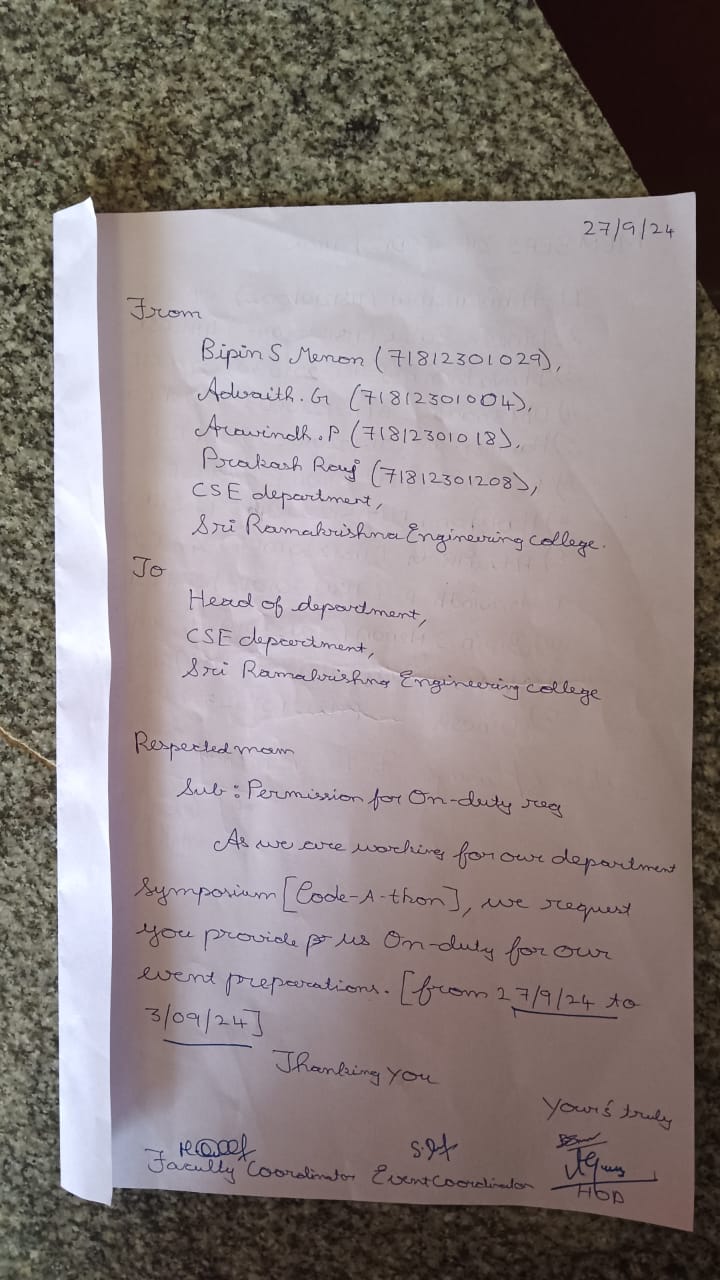 27/9/24
From
Bipin S Menon (71812301029),
Advaith. G (71812301004),
Aravindh. P (71812301018),
Prakash Raj (71812301208),
CSE department,
Sri Ramakrishna Engineering college.
To
Head of department,
CSE department,
Sri Ramakrishna Engineering college
Respected mam
Sub : Permission for On-duty reg
As we are working for our department
Symposium [Code-A-thon], we request
you provide us On-duty for our
event preparations. [from 27/9/24 to
3/09/24]
Thanking you
Your's truly
Faculty Coordinator Event Coordinator HOD